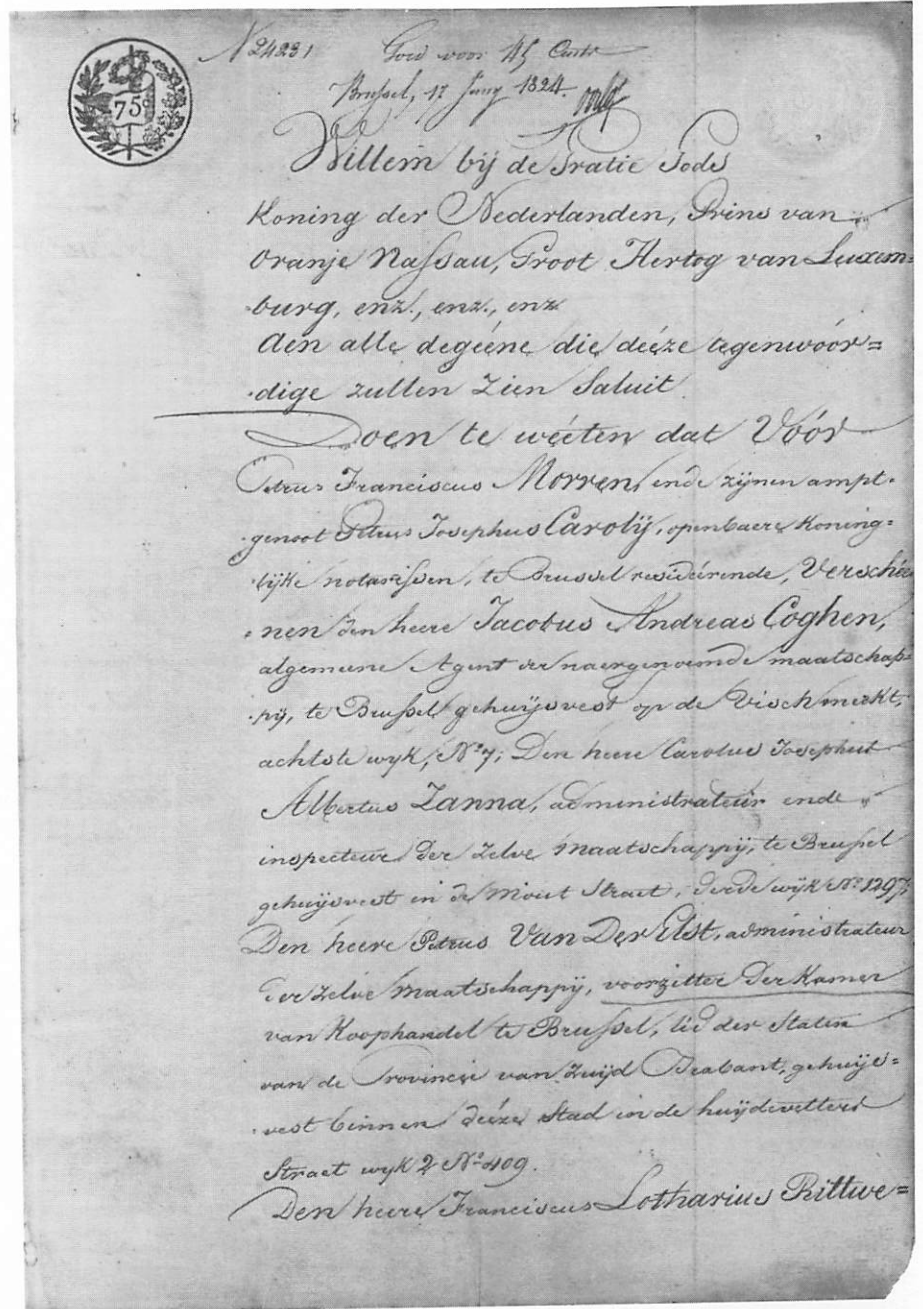 N 24231 Goed voor 75 Cents
Brussel, 17 Juny 1824.
75
Willem bij de Gratie Gods
Koning der Nederlanden, Prins van
Oranje Nassau, Groot Hertog van Luxem=
burg, enz., enz., enz
Aen alle degéene die déeze tegenwóor=
dige zullen Zien Saluit
Doen te wéeten dat Vóór
Petrus Franciscus Morren, ende zijnen ampt-
genoot Petrus Josephus Caroly, openbaere Koning=
lijke notarissen, te Brussel residéerende, Verschée
nen den heere Jacobus Andreas Coghen,
algemeene Agent der naergenoemde maatschap=
pij, te Brussel gehuijsvest op de Vischmerkt,
achtste wyk, N° 7; Den heere Carolus Josephus
Albertus Zanna, administrateur ende
inspecteur der Zelve Maatschappij, te Brussel
gehuijsvest in de Mout Straet, derde wijk N° 1297;
Den heere Petrus Van Der Elst, administrateur
der Zelve Maatschappij, voorzitter der Kamer
van Koophandel te Brussel, lid der Staten
van de Provincie van Zuijd Brabant, gehuijs=
vest binnen déeze Stad in de huijdevetters
Straet wyk 2 N° 409.
Den heere Franciscus Lotharius Rittwe=